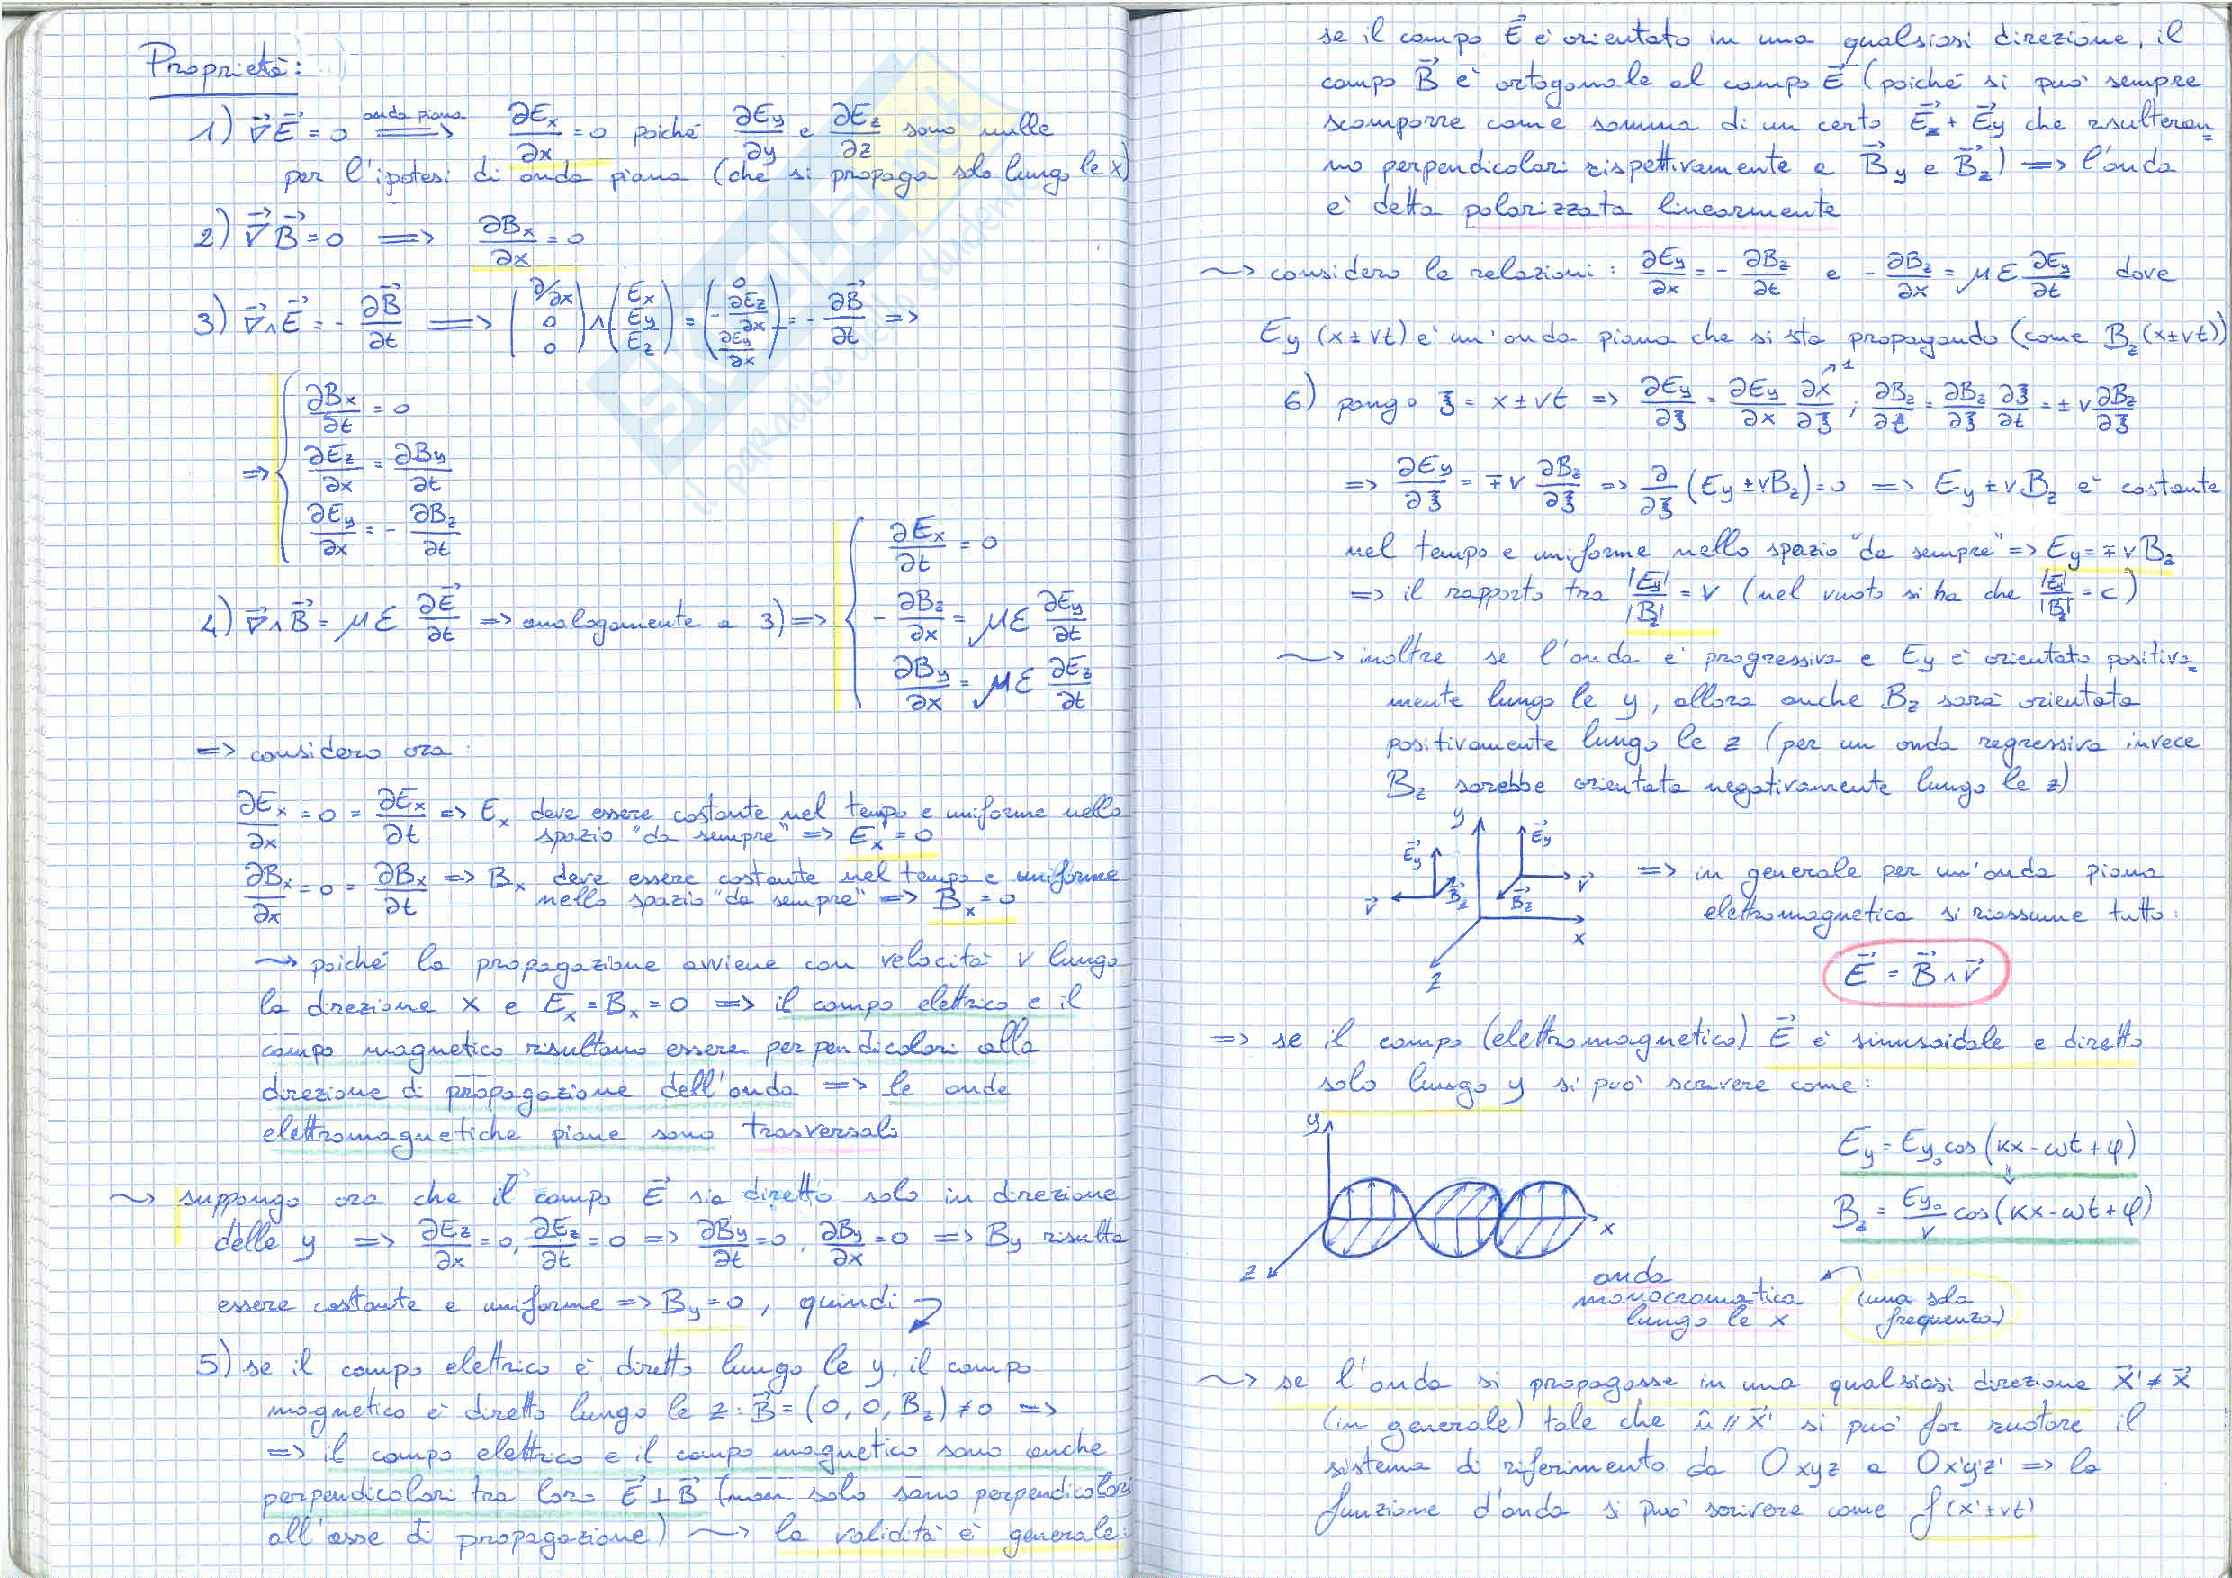 Proprietà:
1) ∇⃗E⃗ = 0 ⟹ (onda piana) ∂Ex/∂x = 0 poiché ∂Ey/∂y e ∂Ez/∂z sono nulle
per l'ipotesi di onda piana (che si propaga solo lungo le x)
2) ∇⃗B⃗ = 0 ⟹ ∂Bx/∂x = 0
3) ∇⃗∧E⃗ = - ∂B⃗/∂t ⟹ (∂/∂x, 0, 0) ∧ (Ex, Ey, Ez) = (0, -∂Ez/∂x, ∂Ey/∂x) = - ∂B⃗/∂t =>
=> { ∂Bx/∂t = 0
∂Ez/∂x = ∂By/∂t
∂Ey/∂x = - ∂Bz/∂t
4) ∇⃗∧B⃗ = με ∂E⃗/∂t => analogamente a 3) => { ∂Ex/∂t = 0
- ∂Bz/∂x = με ∂Ey/∂t
∂By/∂x = με ∂Ez/∂t
=> considero ora:
∂Ex/∂x = 0 = ∂Ex/∂t => Ex deve essere costante nel tempo e uniforme nello
spazio "da sempre" => Ex = 0
∂Bx/∂x = 0 = ∂Bx/∂t => Bx deve essere costante nel tempo e uniforme
nello spazio "da sempre" => Bx = 0
~> poiché la propagazione avviene con velocità v lungo
la direzione x e Ex = Bx = 0 => il campo elettrico e il
campo magnetico risultano essere perpendicolari alla
direzione di propagazione dell'onda => le onde
elettromagnetiche piane sono trasversali
~> suppongo ora che il campo E⃗ sia diretto solo in direzione
delle y => ∂Ez/∂x = 0, ∂Ez/∂t = 0 => ∂By/∂t = 0, ∂By/∂x = 0 => By risulta
essere costante e uniforme => By = 0, quindi
5) se il campo elettrico è diretto lungo le y, il campo
magnetico è diretto lungo le z: B⃗ = (0, 0, Bz) ≠ 0 =>
=> il campo elettrico e il campo magnetico sono anche
perpendicolari tra loro E⃗ ⊥ B⃗ (non solo sono perpendicolari
all'asse di propagazione) ~> la validità è generale:
se il campo E⃗ è orientato in una qualsiasi direzione, il
campo B⃗ è ortogonale al campo E⃗ (poiché si può sempre
scomporre come somma di un certo E⃗z + E⃗y che risulteran=
no perpendicolari rispettivamente a B⃗y e B⃗z) => l'onda
è detta polarizzata linearmente
~> considero le relazioni: ∂Ey/∂x = - ∂Bz/∂t e - ∂Bz/∂x = με ∂Ey/∂t dove
Ey (x±vt) è un'onda piana che si sta propagando (come Bz (x±vt))
6) pongo ξ = x ± vt => ∂Ey/∂ξ = ∂Ey/∂x ∂x/∂ξ ↗1 ; ∂Bz/∂t = ∂Bz/∂ξ ∂ξ/∂t = ± v ∂Bz/∂ξ
=> ∂Ey/∂ξ = ∓v ∂Bz/∂ξ => ∂/∂ξ (Ey ± vBz) = 0 => Ey ± vBz è costante
nel tempo e uniforme nello spazio "da sempre" => Ey = ∓vBz
=> il rapporto tra |Ey|/|Bz| = v (nel vuoto si ha che |Ey|/|Bz| = c)
~> inoltre se l'onda è progressiva e Ey è orientato positiva=
mente lungo le y, allora anche Bz sarà orientata
positivamente lungo le z (per un onda regressiva invece
Bz sarebbe orientata negativamente lungo le z)
y
E⃗y
B⃗z
v⃗
E⃗y
v⃗
B⃗z
x
z
=> in generale per un'onda piana
elettromagnetica si riassume tutto:
E⃗ = B⃗ ∧ v⃗
=> se il campo (elettromagnetico) E⃗ è sinusoidale e diretto
solo lungo y si può scrivere come:
y
x
z
Ey = Ey₀ cos(kx - ωt + φ)
Bz = Ey₀/v cos(kx - ωt + φ)
onda
monocromatica
lungo le x
(una sola
frequenza)
~> se l'onda si propagasse in una qualsiasi direzione x⃗' ≠ x⃗
(in generale) tale che û // x⃗' si può far ruotare il
sistema di riferimento da Oxyz a Ox'y'z' => la
funzione d'onda si può scrivere come f(x'±vt)